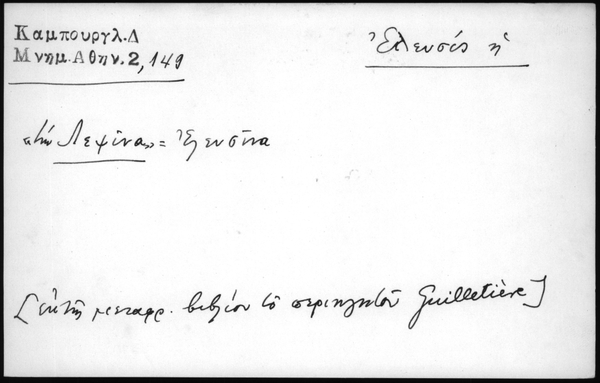 Καμπουργλ.Δ
Μνημ.Αθην.2,149
Ἐλευσίς ἡ
«τὴν Λεψίνα» = Ἐλευσῖνα
[ἐκ τῆς μεταφρ. βιβλίου τοῦ περιηγητοῦ Guilletière]